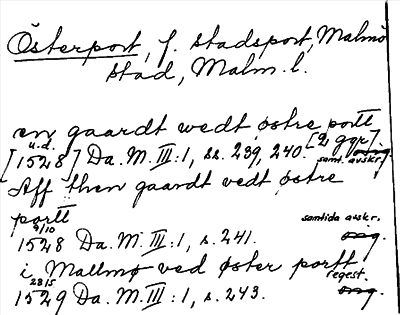 Österport, f. stadsport, Malmö
stad, Malm. l.
en gaardt wedt østre portt
u.d. [2 ggr].
[1528] Da. M. III:1, ss. 239, 240. orig.
samt. avskr.
Aff then gaardt vedt østre
portt
9/10 samtida avskr.
1528 Da. M. III:1, s. 241. orig.
i Mallmø ved øster portt
23/5 regest.
1529 Da. M. III:1, s. 243. orig.